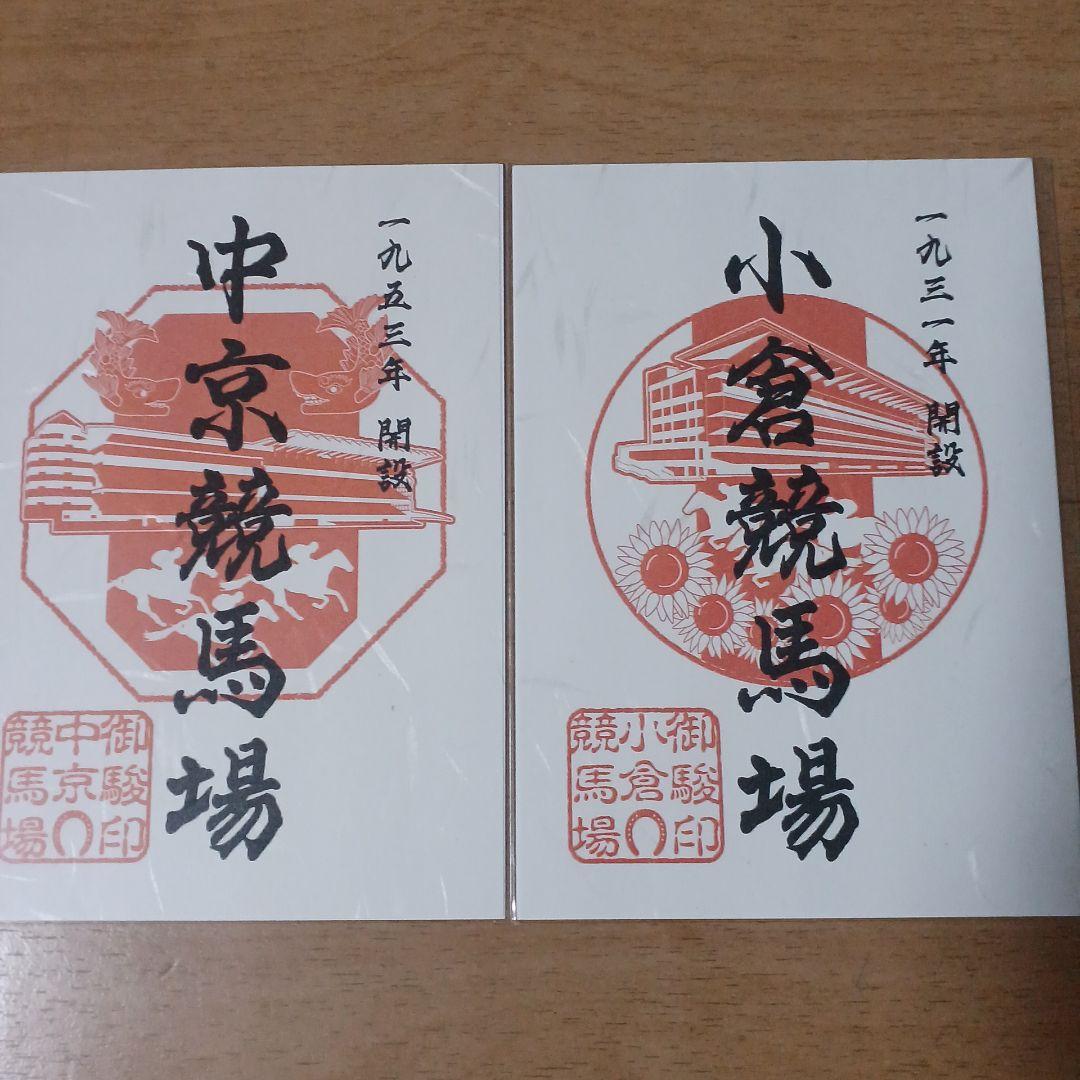 一九五三年 開設
中京競馬場
御駿印
中京
競馬場
一九三一年 開設
小倉競馬場
御駿印
小倉
競馬場